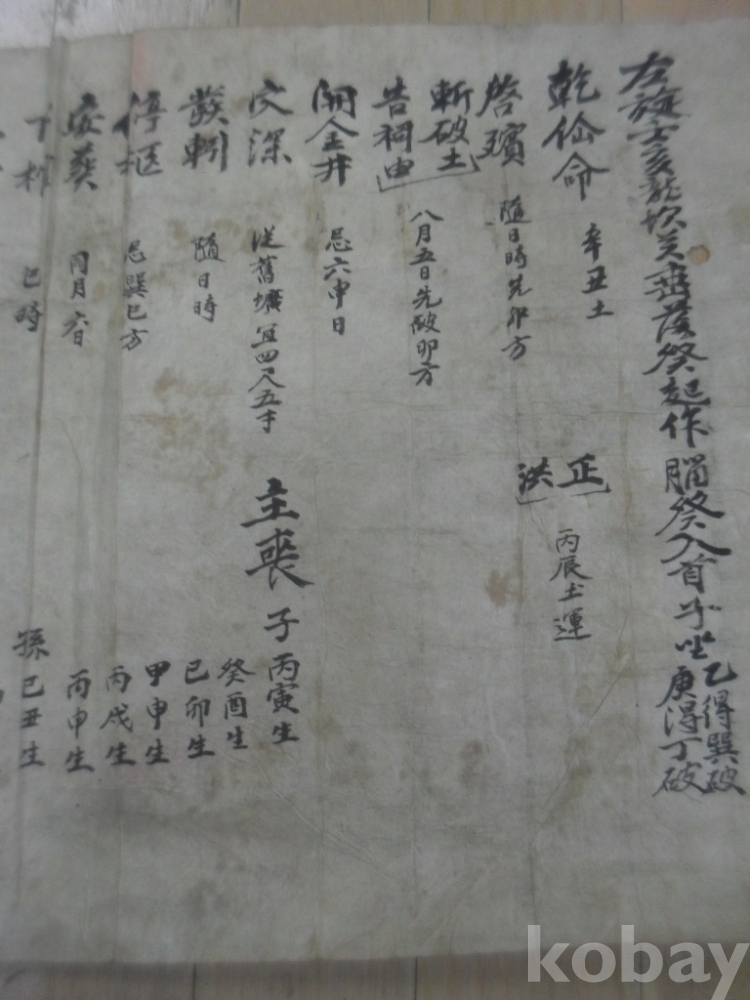 左旋壬亥龍坎癸
起作腦癸入首子坐
乙得巽破
庚得丁破
乾仙命 辛丑土
正
洪
丙辰土運
啓殯 隨日時先卯方
斬破土
告祠由
八月五日先破卯方
開金井 忌六申日
穴深 從舊壙宜四尺五寸
主喪 子丙寅生
癸酉生
發靷 隨日時
己卯生
甲申生
停柩 忌巽巳方
丙戌生
安葬 同月六日
丙申生
下棺 巳時
孫己丑生
kobay